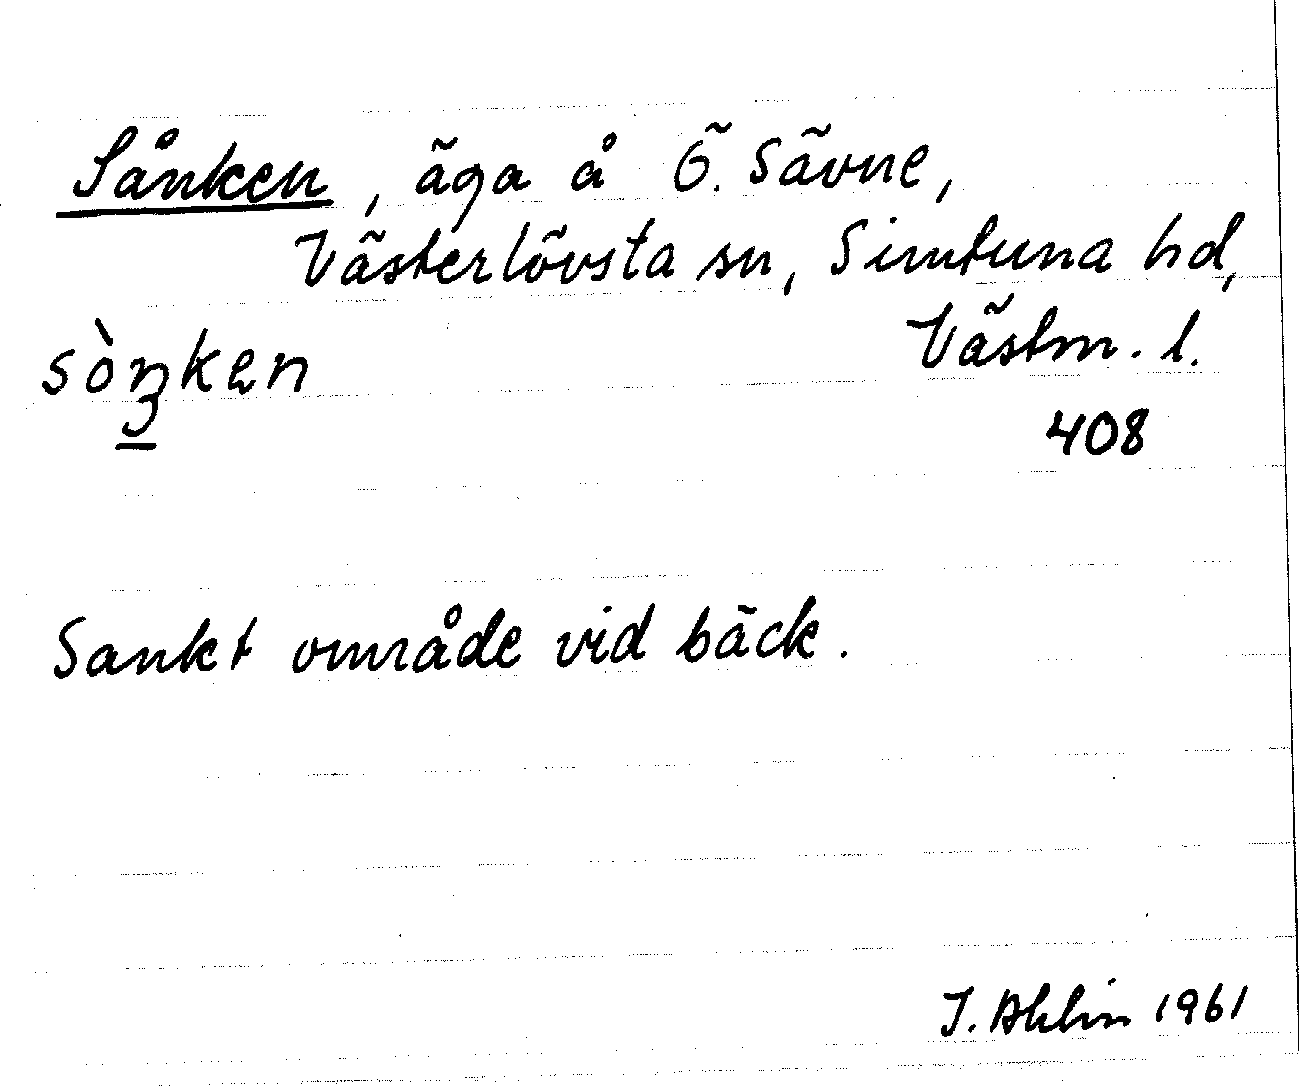 Sånken, äga å Ö. Sävne,
Västerlövsta sn, Simtuna hd,
Västm. l.
sòŋken
408
Sankt område vid bäck.
J. Ahlin 1961